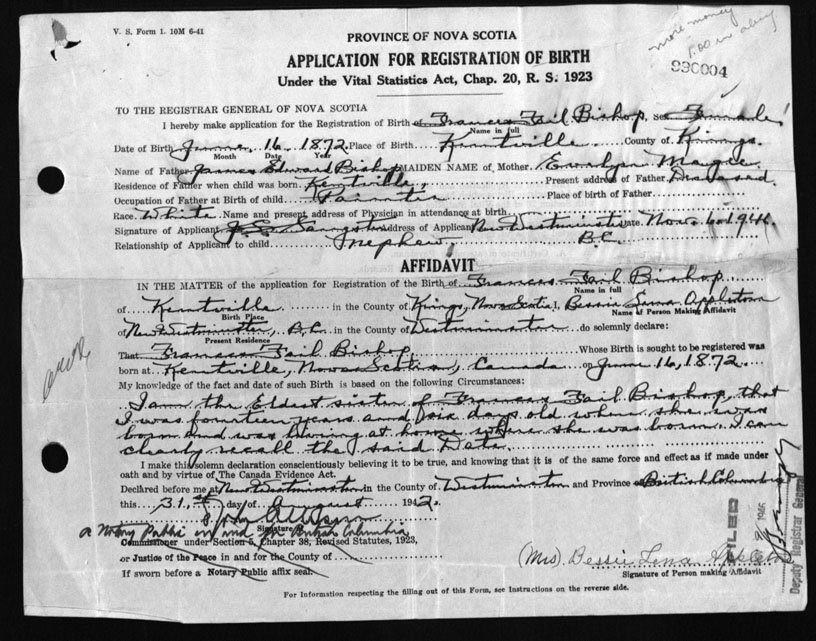 V. S. Form 1. 10M 6-41
PROVINCE OF NOVA SCOTIA
more money
1.00 in all
APPLICATION FOR REGISTRATION OF BIRTH
990004
Under the Vital Statistics Act, Chap. 20, R. S. 1923
TO THE REGISTRAR GENERAL OF NOVA SCOTIA
I hereby make application for the Registration of Birth of Frances Fail Bishop, Sex Female
Name in full
Date of Birth June 16 1872 Place of Birth Kentville County of Kings
Month Date Year
Name of Father James Edward Bishop MAIDEN NAME of Mother Evalyn Magee
Residence of Father when child was born Kentville, Present address of Father Diseased
Occupation of Father at Birth of child Painter Place of birth of Father
Race White Name and present address of Physician in attendance at birth
Signature of Applicant Address of Applicant New Westminster Date Nov. 6. 1946
Relationship of Applicant to child nephew B.C.
AFFIDAVIT
IN THE MATTER of the application for Registration of the Birth of Frances Fail Bishop
Name in full
of Kentville in the County of Kings, Nova Scotia I, Bessie Lena Appleton
Birth Place Name of Person Making Affidavit
of New Westminster, B.C. in the County of Westminster do solemnly declare:
Present Residence
That Frances Fail Bishop Whose Birth is sought to be registered was
born at Kentville, Nova Scotia, Canada on June 16, 1872.
My knowledge of the fact and date of such Birth is based on the following Circumstances:
I am the Eldest sister of Frances Fail Bishop, that
I was fourteen years and six days old when she was
born and was living at home where she was born. I can
clearly recall the said Date.
I make this solemn declaration conscientiously believing it to be true, and knowing that it is of the same force and effect as if made under
oath and by virtue of The Canada Evidence Act.
Declared before me at New Westminster in the County of Westminster and Province of British Columbia
this 31.st day of August 1942.
Signature
a Notary Public in and for British Columbia
Commissioner under Section 5, Chapter 38, Revised Statutes, 1923,
or Justice of the Peace in and for the County of
(Mrs) Bessie Lena Appleton
If sworn before a Notary Public affix seal.
Signature of Person making Affidavit
For Information respecting the filling out of this Form, see Instructions on the reverse side.
FILED
1946
Deputy Registrar General